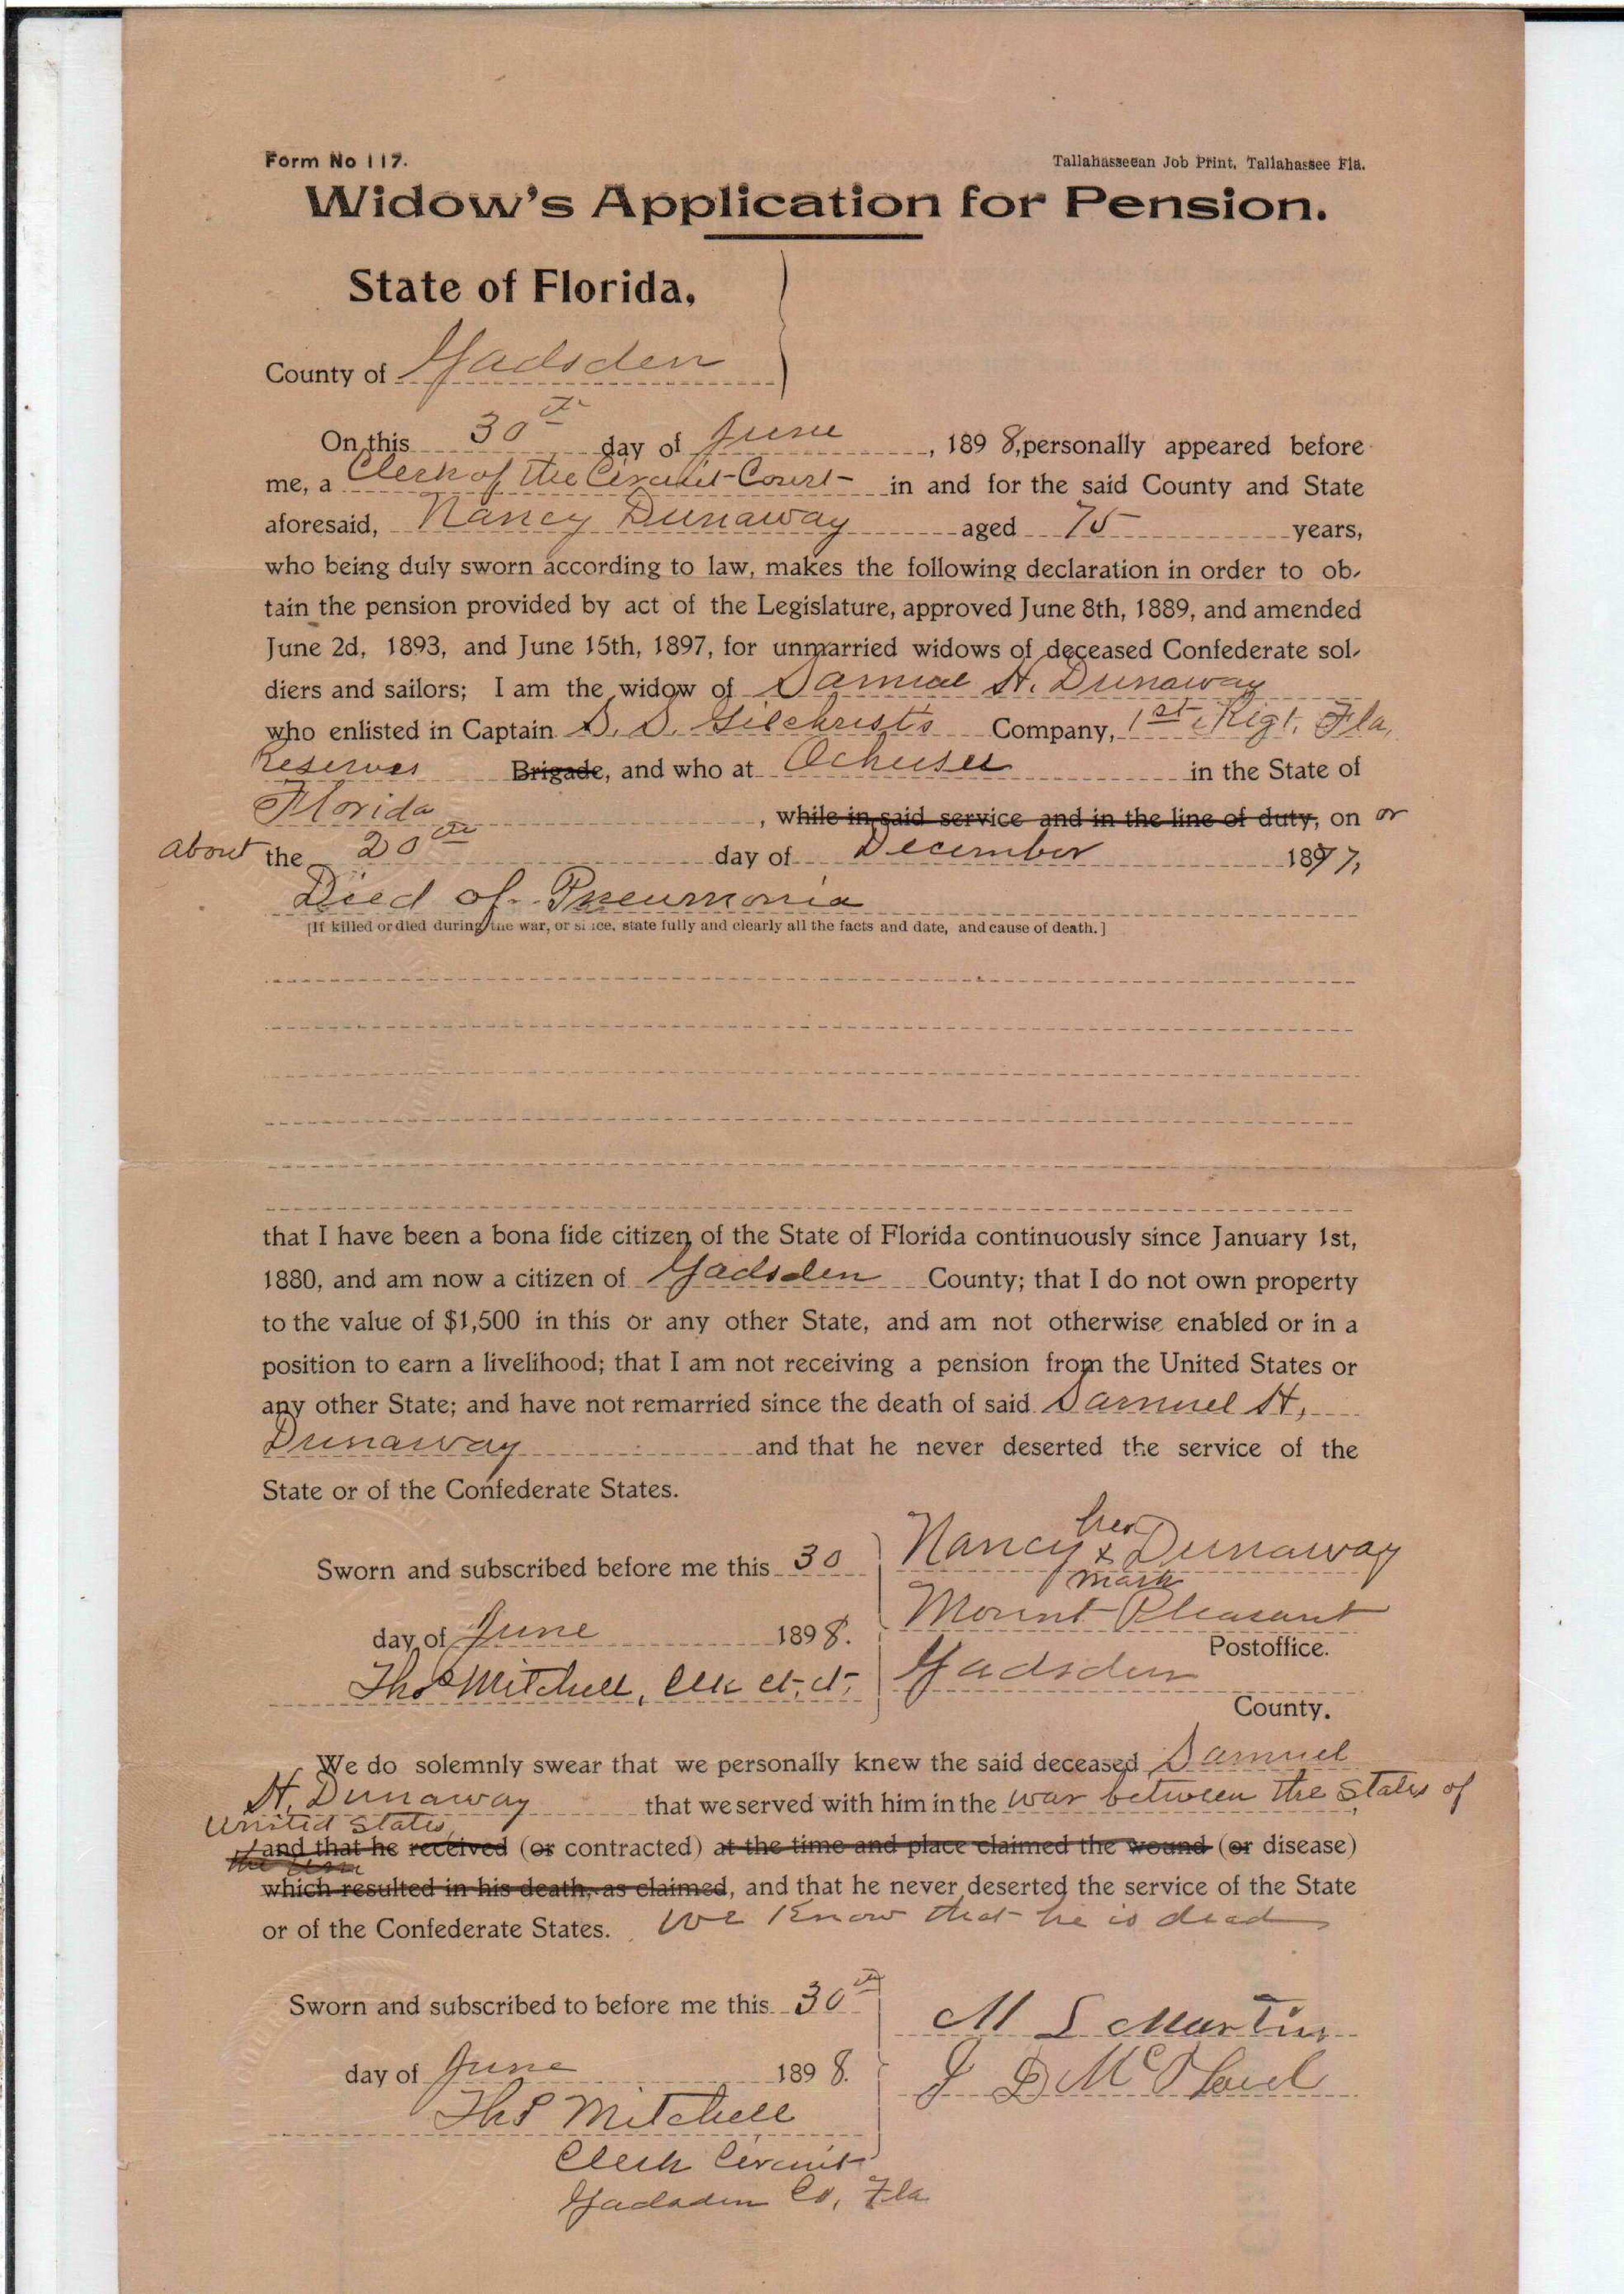 Form No 117.
Tallahasseean Job Print, Tallahassee Fla.
Widow's Application for Pension.
State of Florida,
County of Gadsden
On this 30th day of June, 1898, personally appeared before
me, a Clerk of the Circuit Court in and for the said County and State
aforesaid, Nancy Dunaway aged 75 years,
who being duly sworn according to law, makes the following declaration in order to ob-
tain the pension provided by act of the Legislature, approved June 8th, 1889, and amended
June 2d, 1893, and June 15th, 1897, for unmarried widows of deceased Confederate sol-
diers and sailors; I am the widow of Samuel H. Dunaway
who enlisted in Captain S. S. Gilchrist's Company, 1st Regt. Fla,
Reserves Brigade, and who at Ochesee in the State of
Florida, while in said service and in the line of duty, on or
about the 20th day of December 1897,
Died of Pneumonia
[If killed or died during the war, or since, state fully and clearly all the facts and date, and cause of death.]
that I have been a bona fide citizen of the State of Florida continuously since January 1st,
1880, and am now a citizen of Gadsden County; that I do not own property
to the value of $1,500 in this or any other State, and am not otherwise enabled or in a
position to earn a livelihood; that I am not receiving a pension from the United States or
any other State; and have not remarried since the death of said Samuel H.
Dunaway and that he never deserted the service of the
State or of the Confederate States.
her
Sworn and subscribed before me this 30 Nancy x Dunaway
mark
Mount Pleasant
day of June 1898. Postoffice.
Thos Mitchell, Clk Ct. Ct. Gadsden
County.
We do solemnly swear that we personally knew the said deceased Samuel
H. Dunaway that we served with him in the war between the States of
United States,
and that he received (or contracted) at the time and place claimed the wound (or disease)
which resulted in his death, as claimed, and that he never deserted the service of the State
or of the Confederate States. We know that he is dead
Sworn and subscribed to before me this 30th
M L Martin
day of June 1898. J D McPhaul
Thos Mitchell
Clerk Circuit
Gadsden Co, Fla